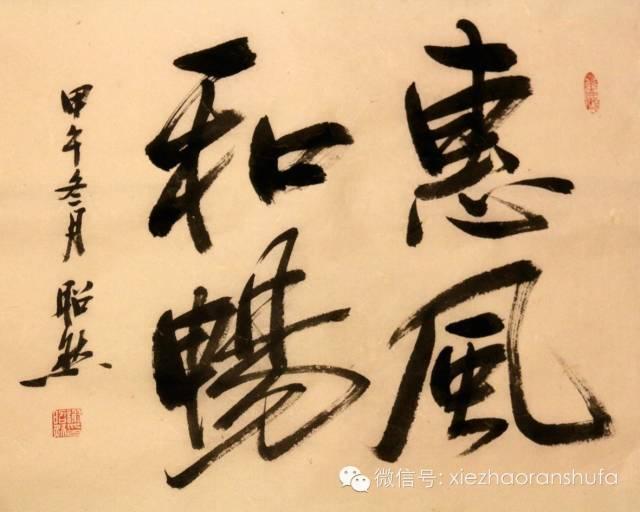 惠風
和暢
甲午冬月 昭然
微信号: xiezhaoranshufa